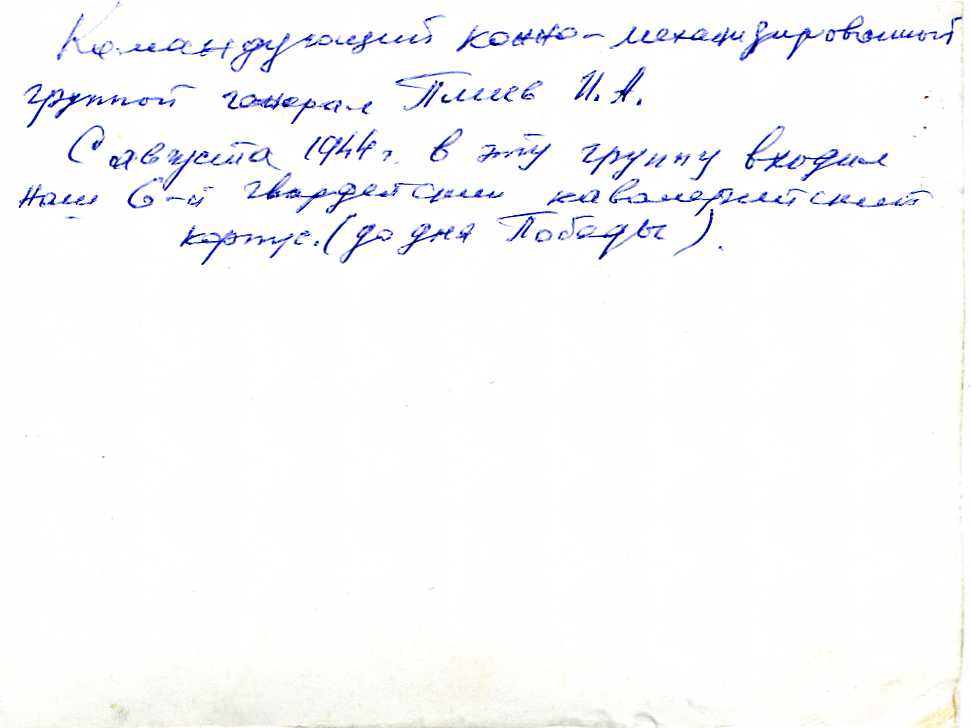 Командующий конно-механизированной
группой генерал Плиев И.А.
С августа 1944 г. в эту группу входил
наш 6-й гвардейский кавалерийский
корпус. (до дня Победы).